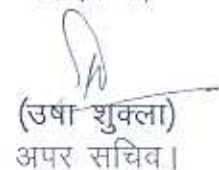 (उषा शुक्ला)
अपर सचिव।